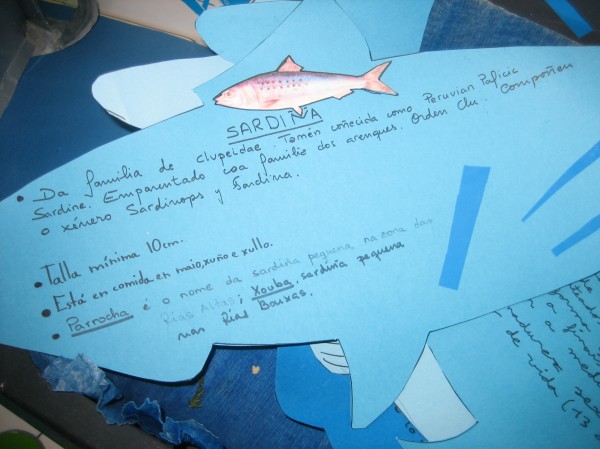 SARDIÑA
• Da familia de clupeidae. Tamén coñecida como Peruvian Pacific
Sardine. Emparentado coa familia dos arenques. Orden Clu. Compoñen
o xénero Sardinops y Sardina.
• Talla mínima 10cm.
• Está en comida en maio, xuño e xullo.
• Parrocha é o nome da sardiña pequena na zona das
Rías Altas; Xouba, sardiña pequena
nas Rías Baixas.
de vida (13